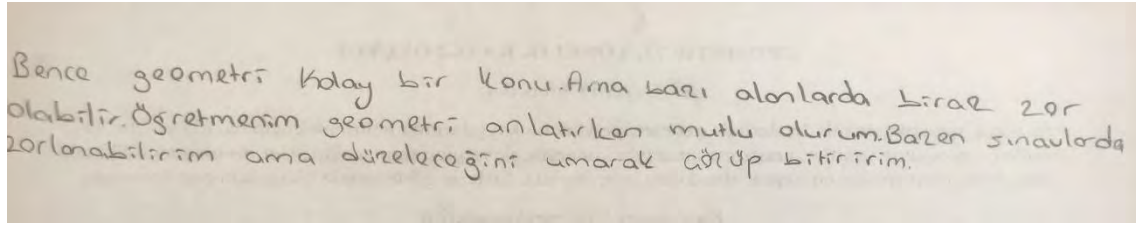 Bence geometri kolay bir konu.Ama bazı alanlarda biraz zor
olabilir.Öğretmenim geometri anlatırken mutlu olurum.Bazen sınavlarda
zorlanabilirim ama düzeleceğini umarak çözüp bitiririm.